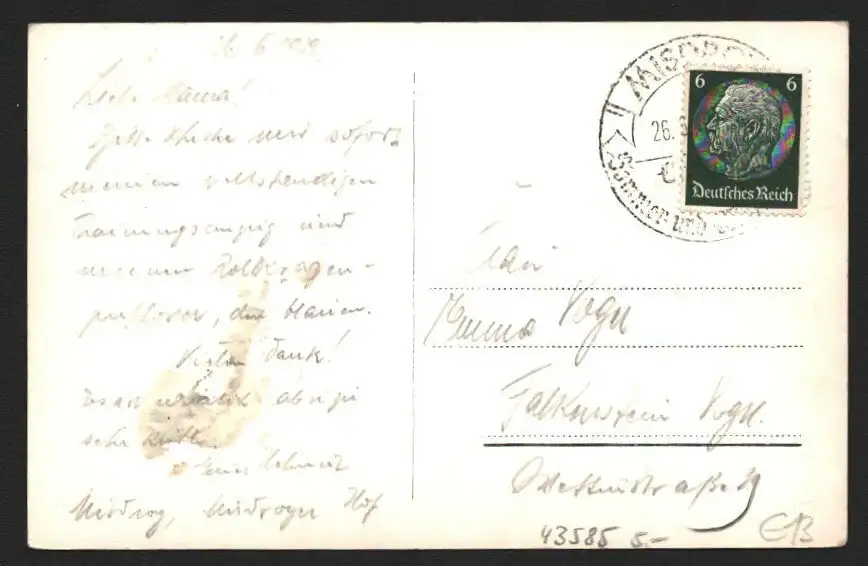 26. 6. 1939
Liebe Mama!
Bitte schicke mir sofort
meinen vollständigen
Trainingsanzug und
meinen Rollkragen-
pullover, den blauen.
Vielen Dank!
Es ist
sehr
Euer Helmut
Misdroy, Misdroyer Hof
MISDROY
26.
Sommer- und
6 6
Deutsches Reich
Emma Vogel
Falkenstein Vogtl.
Wettinstraße
43585 5.-